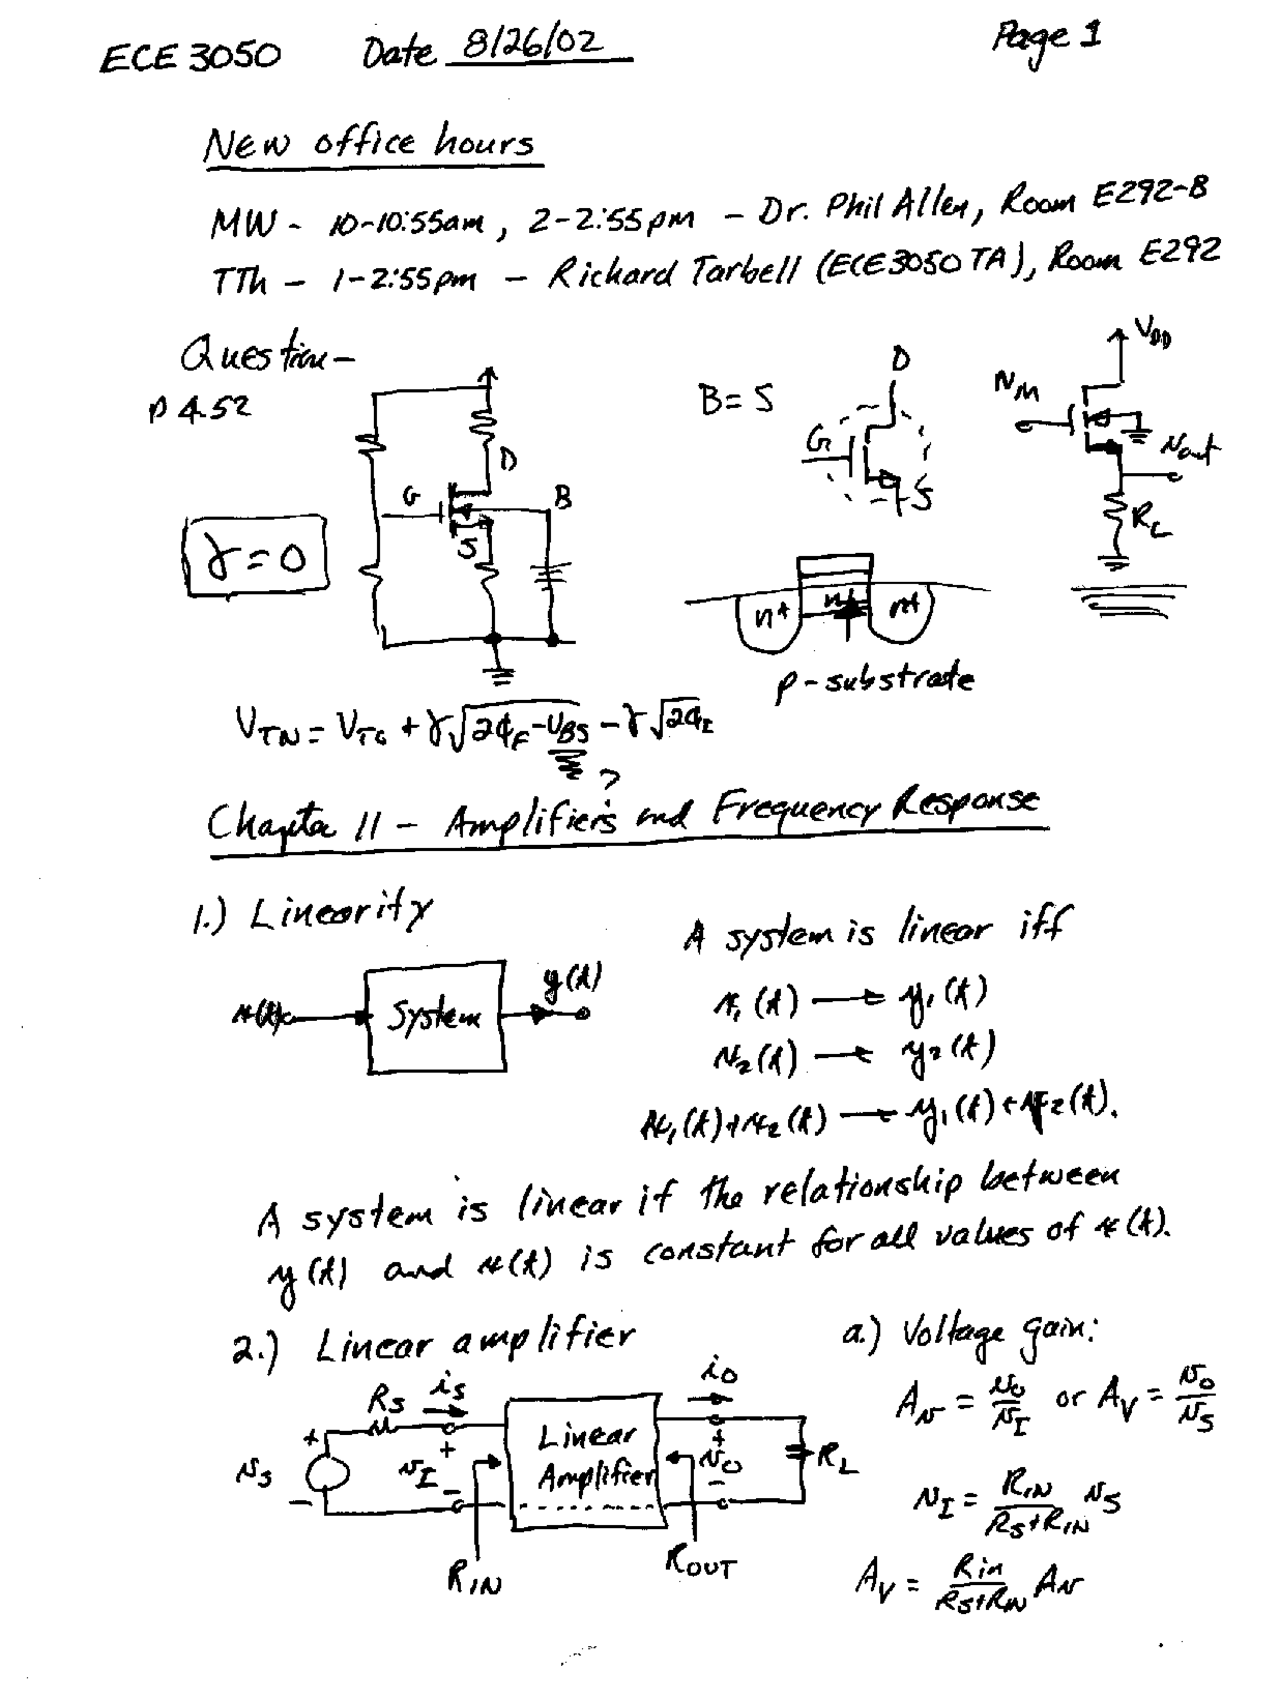 ECE 3050 Date 8/26/02 Page 1
New office hours
MW - 10-10:55am, 2-2:55pm - Dr. Phil Allen, Room E292-B
TTh - 1-2:55pm - Richard Tarbell (ECE3050 TA), Room E292
Question -
P 4.52
γ = 0
G
D
S
B
B = S
D
G
S
V_DD
v_IN
v_out
R_L
n+ n+ n+
p-substrate
V_TN = V_TO + γ√(2φ_F - V_BS) - γ√(2φ_F)
?
Chapter 11 - Amplifiers and Frequency Response
1.) Linearity
x(t) System y(t)
A system is linear iff
x₁(t) → y₁(t)
x₂(t) → y₂(t)
x₁(t)+x₂(t) → y₁(t)+y₂(t).
A system is linear if the relationship between
y(t) and x(t) is constant for all values of x(t).
2.) Linear amplifier
a.) Voltage gain:
R_S i_S i_O
+ v_S -
+ v_I -
Linear
Amplifier
+ v_O -
R_L
R_IN
R_OUT
A_v = v_O/v_I or A_V = v_O/v_S
v_I = R_IN/(R_S+R_IN) v_S
A_V = R_in/(R_S+R_IN) A_v